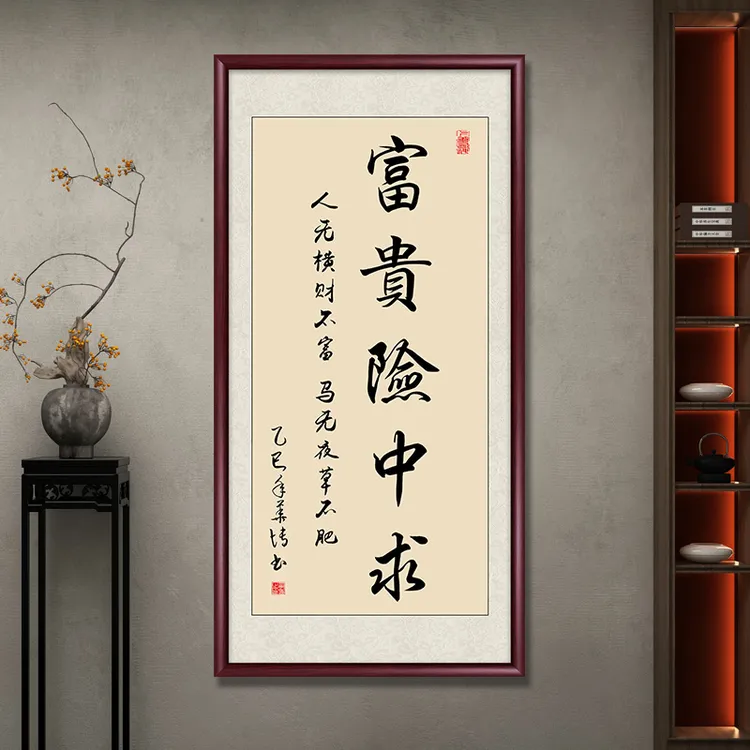 富貴險中求
人无横财不富 马无夜草不肥
乙巳年
书